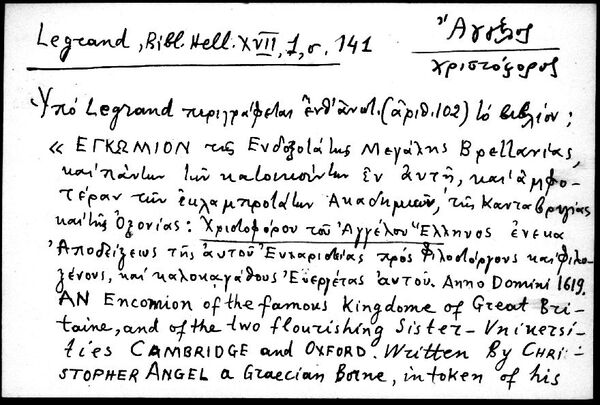 Legrand, Bibl. Hell. XVII, 1, σ. 141
Ἄγγελος
Χριστόφορος
Ὑπό Legrand περιγράφεται ἐνθ' ἀνωτ. (ἀριθ. 102) τό βιβλίον:
« ΕΓΚΩΜΙΟΝ τῆς Ἐνδοξοτάτης Μεγάλης Βρεττανίας,
καὶ πάντων τῶν κατοικούντων ἐν αὐτῇ, καὶ ἀμφο-
τέραν τῶν ἐκλαμπροτάτων Ἀκαδημιῶν, τῆς Κανταβρυγίας
καὶ τῆς Ὀξονίας: Χριστοφόρου τοῦ Ἀγγέλου Ἕλληνος ἕνεκα
Ἀποδείξεως τῆς αὐτοῦ Εὐχαριστείας πρός Φιλοστόργους καὶ φιλο-
ξένους, καὶ καλοκαγάθους Εὐεργέτας αὐτοῦ. Anno Domini 1619.
AN Encomion of the famous Kingdome of Great Bri-
taine, and of the two flourishing Sister-Vniversi-
ties CAMBRIDGE and OXFORD. Written By CHRI-
STOPHER ANGEL a Graecian Borne, in token of his